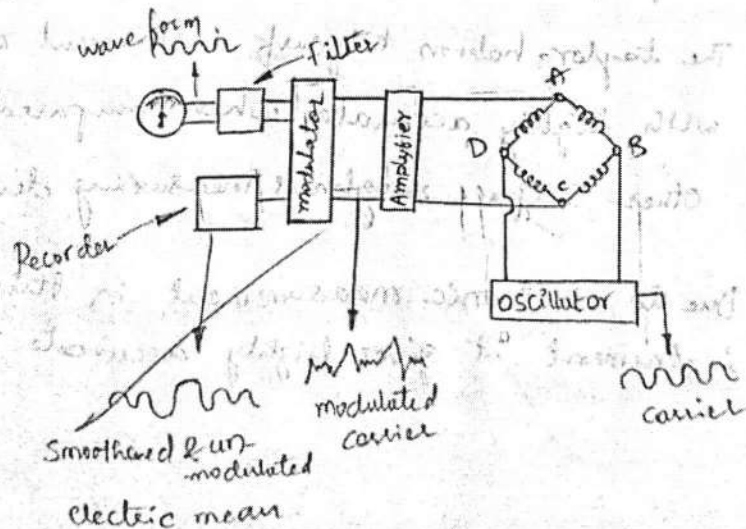 wave form
Filter
modulator
Amplyfier
A
D
B
C
Recorder
oscillutor
modulated
carrier
carrier
Smoothened & un-
modulated
electric mean